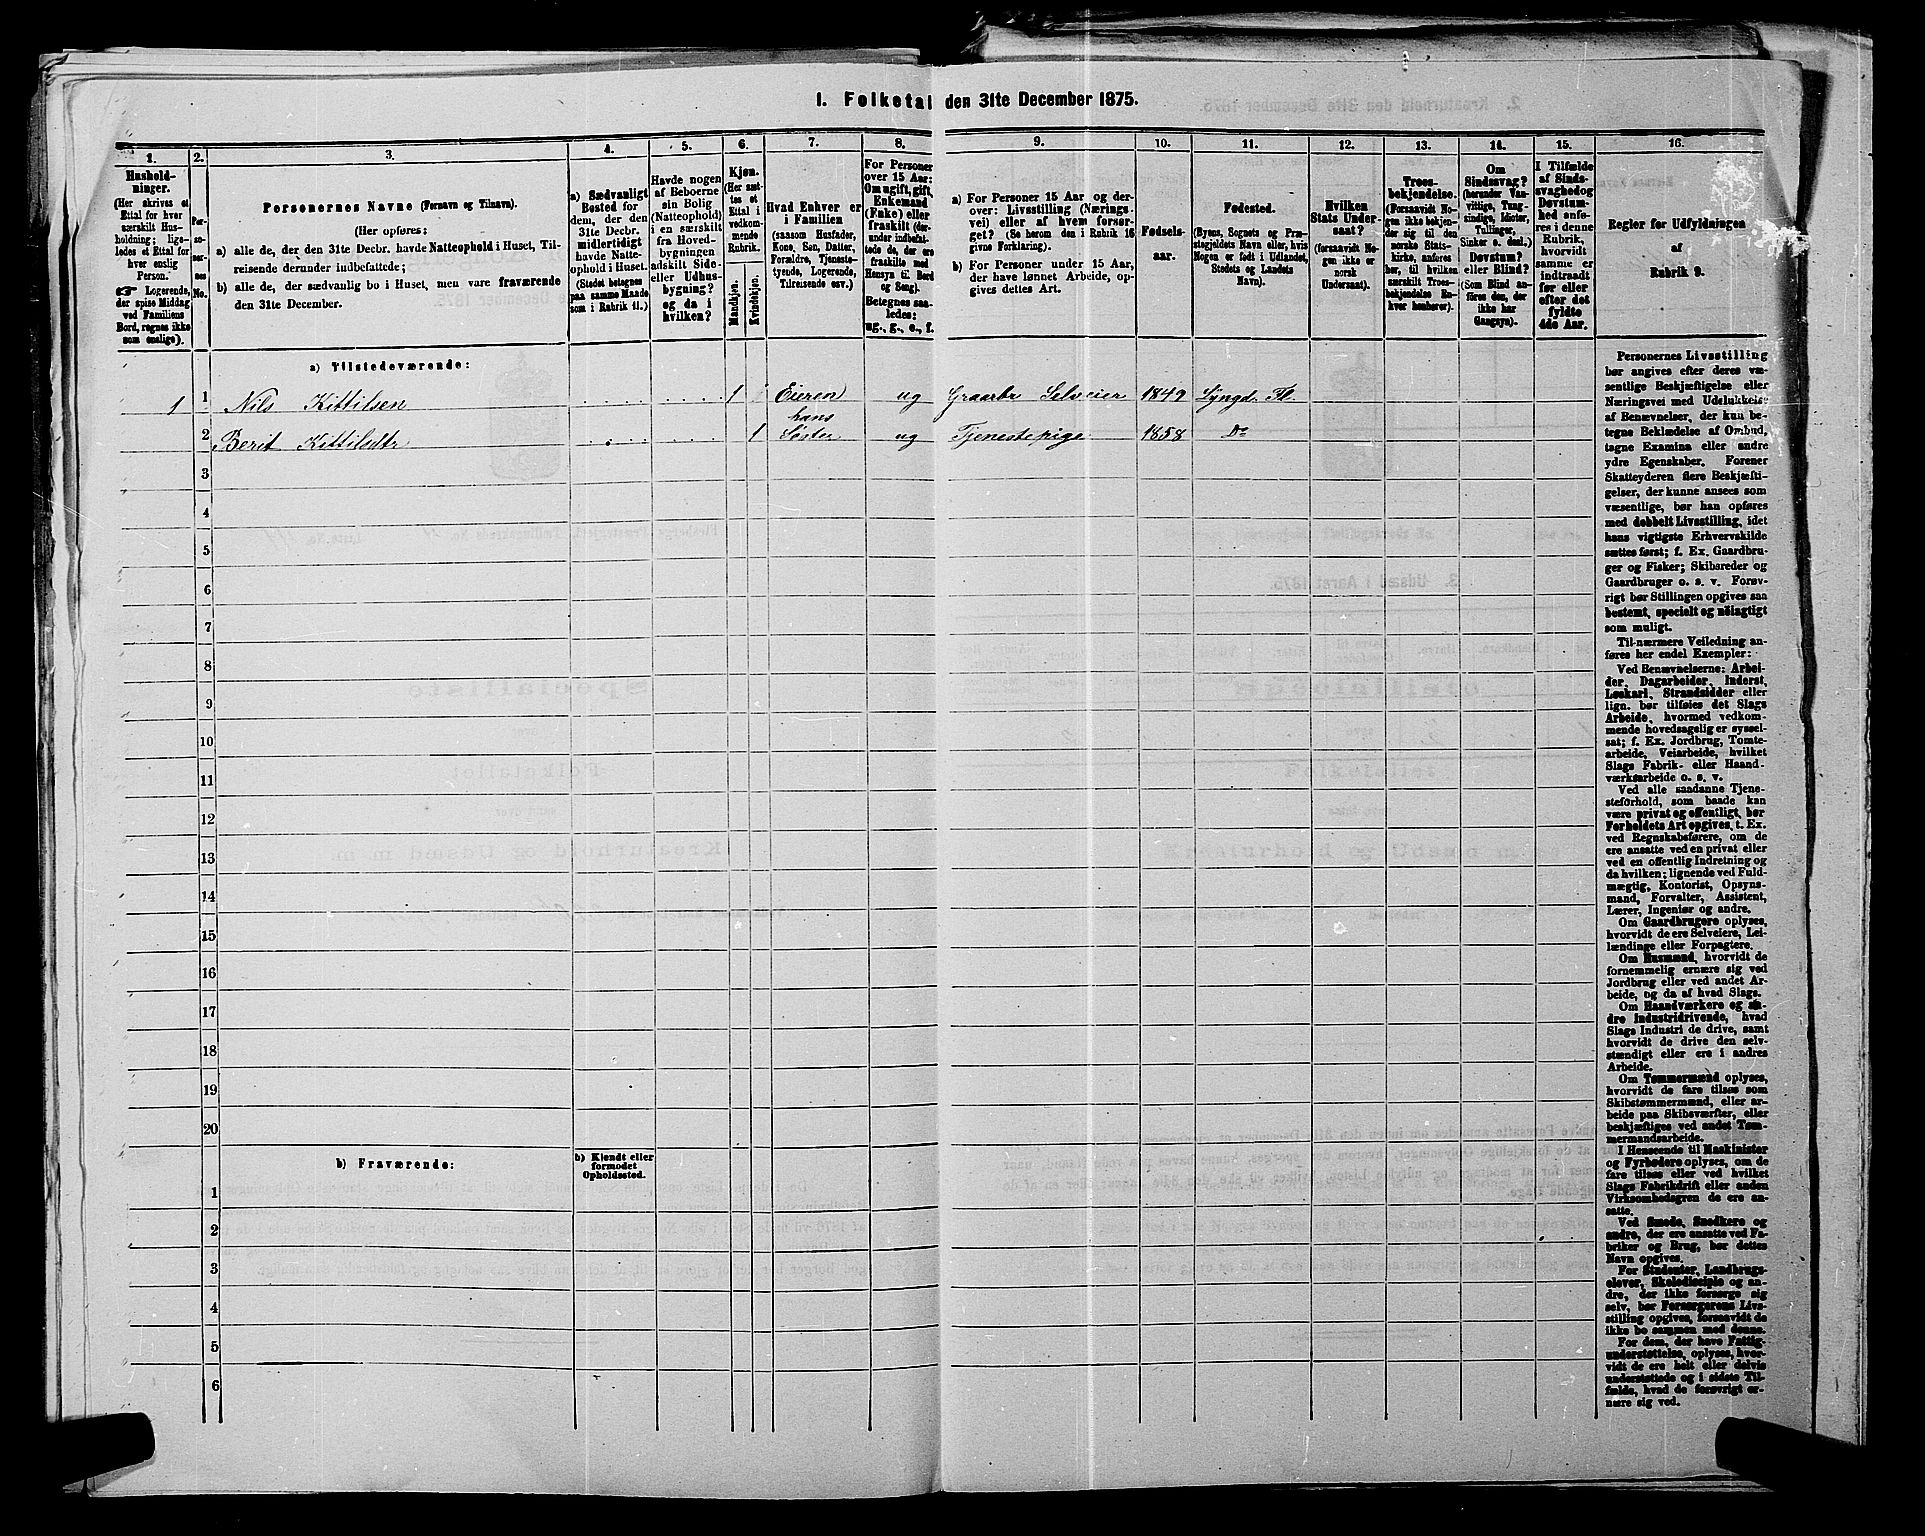 1. Folketal den 31te December 1875.
1.
Hushold-
ninger.
(Her skrives et
Ettal for hver
særskilt Hus-
holdning; lige-
ledes et Ettal for
hver enslig
Person.
☞ Logerende,
der spise Middag
ved Familiens
Bord, regnes ikke
som enslige).
2.
Per-
so-
ner-
nes
No.
3.
Personernes Navne (Fornavn og Tilnavn).
(Her opføres:
a) alle de, der den 31te Decbr. havde Natteophold i Huset, Til-
reisende derunder indbefattede;
b) alle de, der sædvanlig bo i Huset, men vare fraværende
den 31te December.
4.
a) Sædvanligt
Bosted for
dem, der den
31te Decbr.
midlertidigt
havde Natte-
ophold i Huset.
(Stedet betegnes
paa samme Maade
som i Rubrik 11.)
5.
Havde nogen
af Beboerne
sin Bolig
(Natteophold)
i en særskilt
fra Hoved-
bygningen
adskilt Side-
eller Udhus-
bygning?
og da i
hvilken?
6.
Kjøn.
(Her sæt-
tes et
Ettal i
vedkom-
mende
Rubrik.
Mandkjøn.
Kvindekjøn.
7.
Hvad Enhver er
i Familien
(saasom Husfader,
Kone, Søn, Datter,
Forældre, Tjeneste-
tyende, Logerende,
Tilreisende osv.)
8.
For Personer
over 15 Aar:
Om ugift, gift,
Enkemand
(Enke) eller
fraskilt (der-
under indbefat-
tede de, der ere
fraskilte med
Hensyn til Bord
og Seng).
Betegnes saa-
ledes:
ug., g., e., f.
9.
a) For Personer 15 Aar og der-
over: Livsstilling (Nærings-
vei) eller af hvem forsør-
get? (Se herom den i Rubrik 16
givne Forklaring).
b) For Personer under 15 Aar,
der have lønnet Arbeide, op-
gives dettes Art.
10.
Fødsels-
aar.
11.
Fødested.
(Byens, Sognets og Præ-
stegjeldets Navn eller, hvis
Nogen er født i Udlandet,
Stedets og Landets
Navn).
12.
Hvilken
Stats Under-
saat?
(forsaavidt No-
gen ikke er
norsk
Undersaat).
13.
Troes-
bekjendelse.
(Forsaavidt No-
gen ikke bekjen-
der sig til den
norske Stats-
kirke, anføres
her, til hvilken
særskilt Troes-
bekjendelse En-
hver henhører).
14.
Om
Sindssvag?
(herunder Van-
vittige, Tung-
sindige, Idioter,
Tullinger,
Sinker o. desl.)
Døvstum?
eller Blind?
(Som Blind an-
føres den, der
ikke har
Gangsyn).
15.
I Tilfælde
af Sinds-
svaghed og
Døvstum-
hed anfø-
res i denne
Rubrik,
hvorvidt
samme er
indtraadt
før eller
efter det
fyldte
4de Aar.
16.
Regler før Udfyldningen
af
Rubrik 9.
a) Tilstedeværende:
1 1 Nils Kittilsen 1 Eieren ug Graarbr Selveier 1849 Lyngd. Fl.
2 Berit Kittilsdtr 1 hans
Søster ug Tjenestepige 1858 Do
3
4
5
6
7
8
9
10
11
12
13
14
15
16
17
18
19
20
b) Fraværende:
b) Kjendt eller
formodet
Opholdssted.
1
2
3
4
5
6
Personernes Livsstilling
bør angives efter deres væ-
sentlige Beskjæftigelse eller
Næringsvei med Udelukkelse
af Benævnelser, der kun be-
tegne Beklædelse af Ombud,
tagne Examina eller andre
ydre Egenskaber. Forener
Skatteyderen flere Beskjæfti-
gelser, der kunne ansees som
væsentlige, bør han opføres
med dobbelt Livsstilling, idet
hans vigtigste Erhvervskilde
sættes først; f. Ex. Gaardbru-
ger og Fisker; Skibsreder og
Gaardbruger o. s. v. Forøv-
rigt bør Stillingen opgives saa
bestemt, specielt og nøiagtigt
som muligt.
Til nærmere Veiledning an-
føres her endel Exempler:
Ved Benævnelserne: Arbei-
der, Dagarbeider, Inderst,
Løskarl, Strandsidder eller
lign. bør tilføies det Slags
Arbeide, hvormed vedkom-
mende hovedsagelig er syssel-
sat; f. Ex. Jordbrug, Tomte-
arbeide, Veiarbeide, hvilket
Slags Fabrik- eller Haand-
værksarbeide o. s. v.
Ved alle saadanne Tjene-
steforhold, som baade kan
være privat og offentligt, bør
Forholdets Art opgives, t. Ex.
ved Regnskabsførere, om de
ere ansatte ved en privat eller
ved en offentlig Indretning og
da hvilken; lignende ved Fuld-
mægtig, Kontorist, Opsyns-
mand, Forvalter, Assistent,
Lærer, Ingeniør og andre.
Om Gaardbrugere oplyses,
hvorvidt de ere Selveiere, Lei-
lændinge eller Forpagtere.
Om Husmænd, hvorvidt de
fornemmelig ernære sig ved
Jordbrug eller ved andet Ar-
beide, og da af hvad Slags.
Om Haandværkere og an-
dre Industridrivende, hvad
Slags Industri de drive, samt
hvorvidt de drive den selv-
stændigt eller ere i andres
Arbeide.
Om Tømmermænd oplyses,
hvorvidt de fare tilsøs som
Skibstømmermænd, eller ar-
beide paa Skibsværfter, eller
beskjæftiges ved andet Tøm-
mermandsarbeide.
I Henseende til Maskinister
og Fyrbødere oplyses, om de
fare tilsøs eller ved hvilket
Slags Fabrikdrift eller anden
Virksomhedsgren de ere an-
satte.
Ved Smede, Snedkere og
andre, der ere ansatte ved Fa-
briker og Brug, bør dettes
Navn opgives.
For Studenter, Landbrugs-
elever, Skoledisciple og an-
dre, der ikke forsørge sig
selv, bør Forsørgerens Livs-
stilling opgives, forsaavidt de
ikke bo sammen med denne.
For dem, der have Fattig-
understøttelse, oplyses, hvor-
vidt de ere helt eller delvis
understøttede og i sidste Til-
fælde, hvad de forøvrigt er-
nære sig ved.